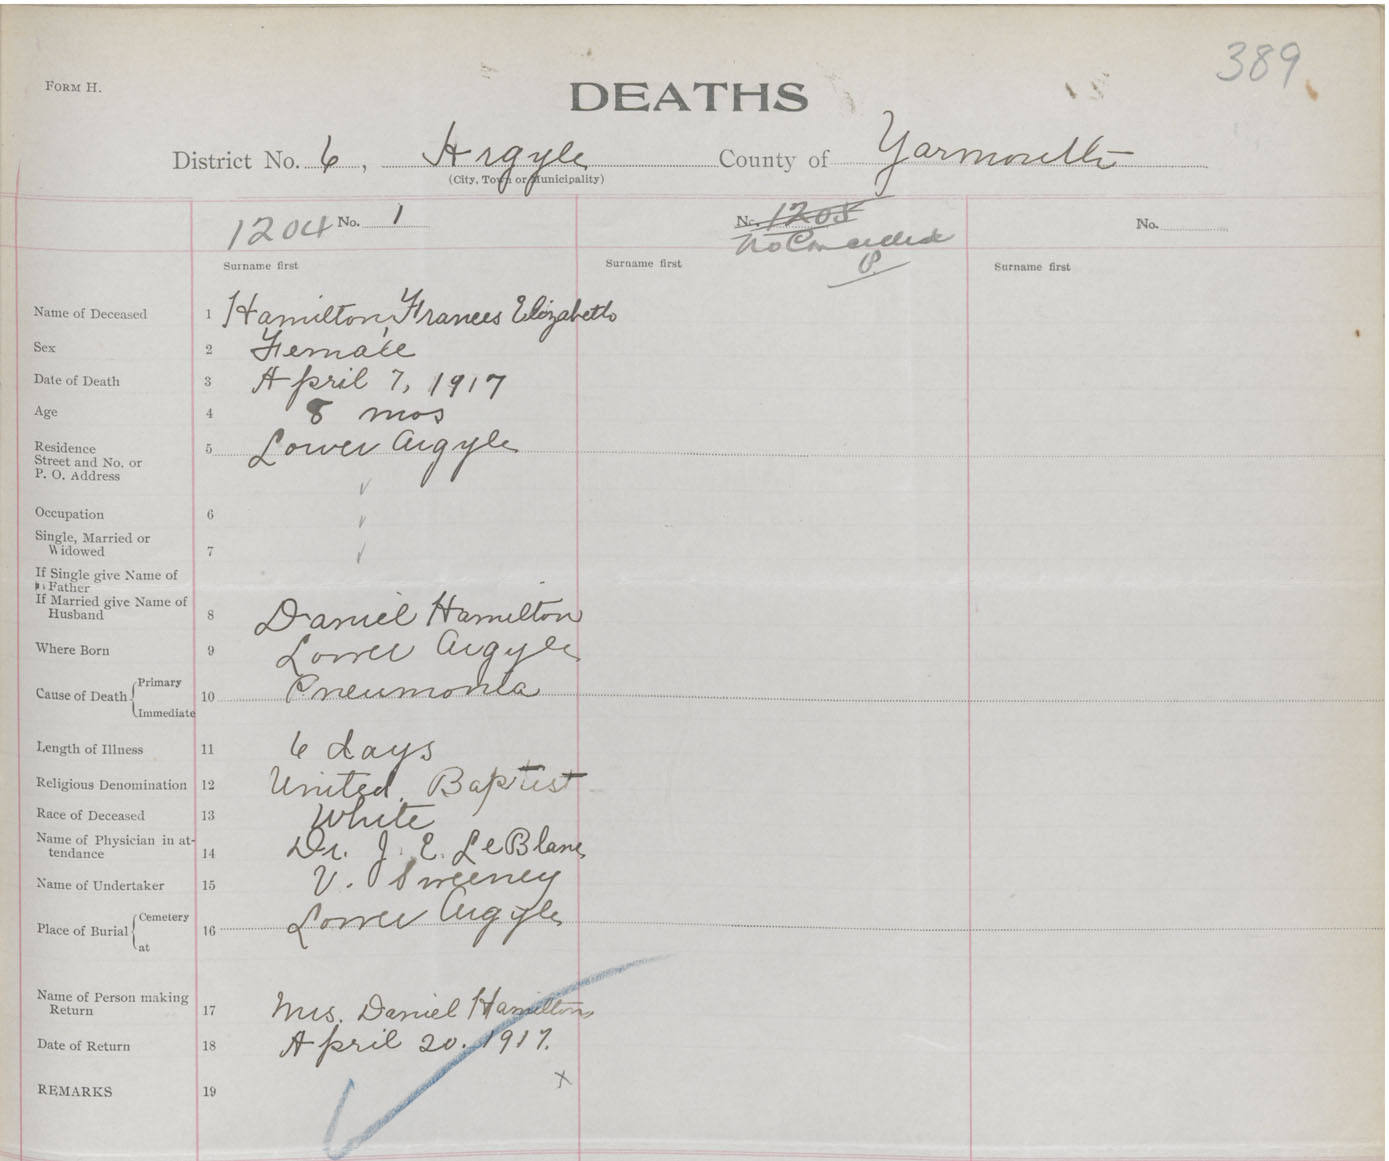 389
FORM H.
DEATHS
District No. 6, Argyle County of Yarmouth
(City, Town or Municipality)
1204 No. 1 No. 1205 No.
No
Surname first Surname first Surname first
Name of Deceased 1 Hamilton, Frances Elizabeth
Sex 2 Female
Date of Death 3 April 7, 1917
Age 4 8 mos
Residence 5 Lower Argyle
Street and No. or
P. O. Address
Occupation 6
Single, Married or
Widowed 7
If Single give Name of
Father
If Married give Name of
Husband 8 Daniel Hamilton
Where Born 9 Lower Argyle
Cause of Death { Primary 10 Pneumonia
Immediate
Length of Illness 11 6 days
Religious Denomination 12 United Baptist
Race of Deceased 13 White
Name of Physician in at-
tendance 14 Dr. J. E. LeBlanc
Name of Undertaker 15 V. Sweeney
Place of Burial { Cemetery 16 Lower Argyle
at
Name of Person making
Return 17 Mrs. Daniel Hamilton
Date of Return 18 April 20. 1917.
REMARKS 19 x